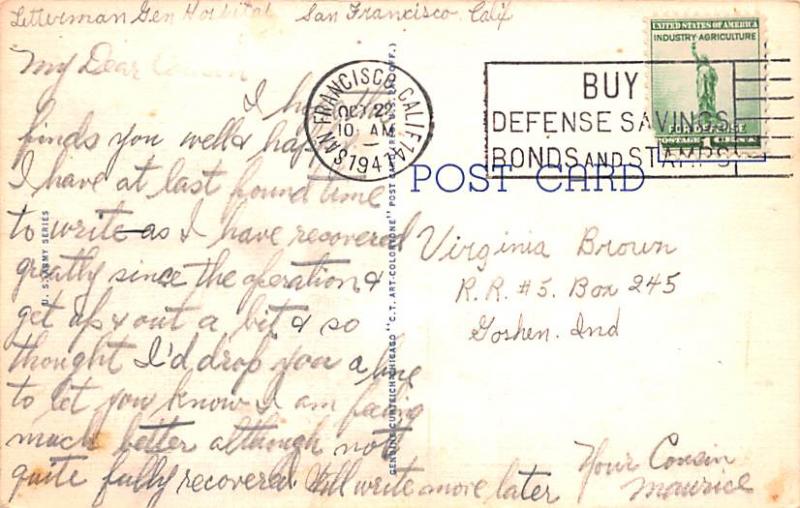 Letterman Gen Hospital San Francisco, Calif
My Dear Cousin
I hope this
finds you well & happy.
I have at last found time
to write as I have recovered
greatly since the operation &
get up & out a bit & so
thought I'd drop you a line
to let you know I am feeling
much better although not
quite fully recovered. Will write more later
Your Cousin
Maurice
U. S. ARMY SERIES
GENUINE CURTEICH-CHICAGO "C.T. ART-COLORTONE" POST CARD
SAN FRANCISCO, CALIF. 14
OCT 22
10 AM
1941
BUY
DEFENSE SAVINGS
BONDS AND STAMPS
UNITED STATES OF AMERICA
INDUSTRY-AGRICULTURE
FOR DEFENSE
POSTAGE 1¢
POST CARD
Virginia Brown
R.R. #5. Box 245
Goshen. Ind